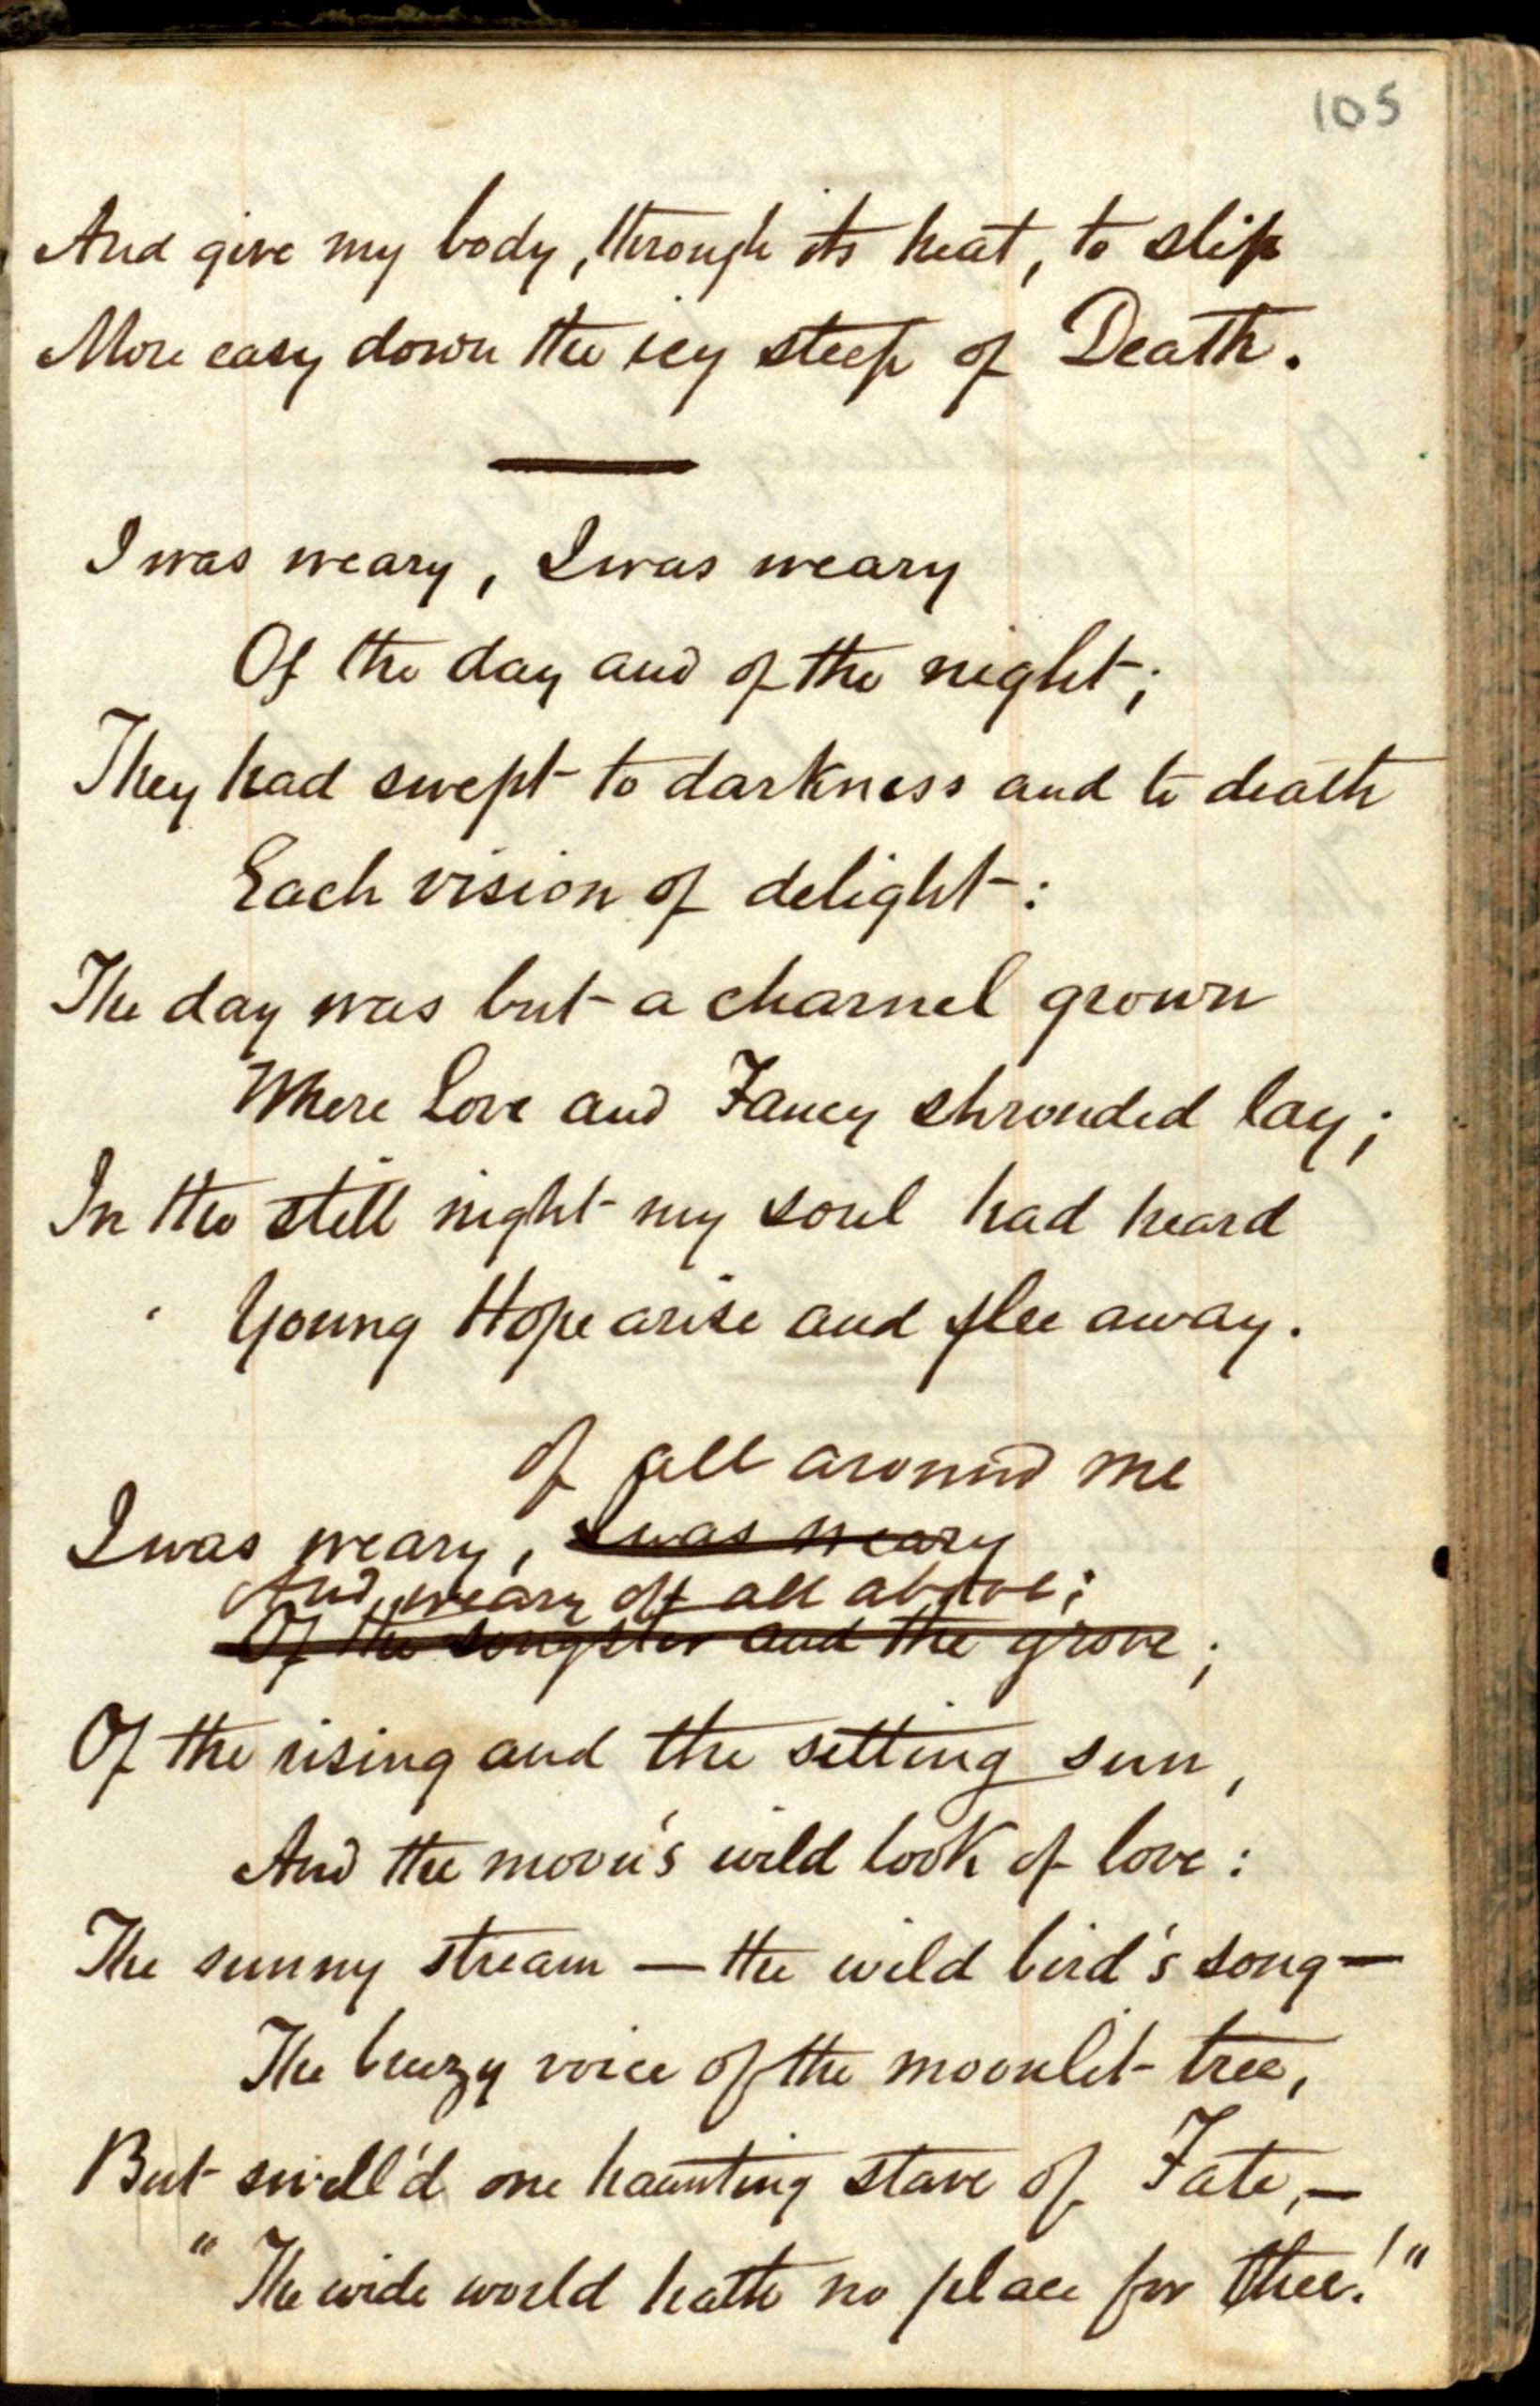 105
And give my body, through its heat, to slip
More easy down the icy steep of Death.
I was weary, I was weary
Of the day and of the night;
They had swept to darkness and to death
Each vision of delight:
The day was but a charnel grown
Where Love and Fancy shrouded lay;
In the still night my soul had heard
Young Hope arise and flee away.
of all around me
I was weary, I was weary
And weary of all above;
Of the songster and the grove;
Of the rising and the setting sun,
And the moon's wild look of love:
The sunny stream — the wild bird's song —
The breezy voice of the moonlit tree,
But swell'd one haunting stave of Fate, —
"The wide world hath no place for thee!"